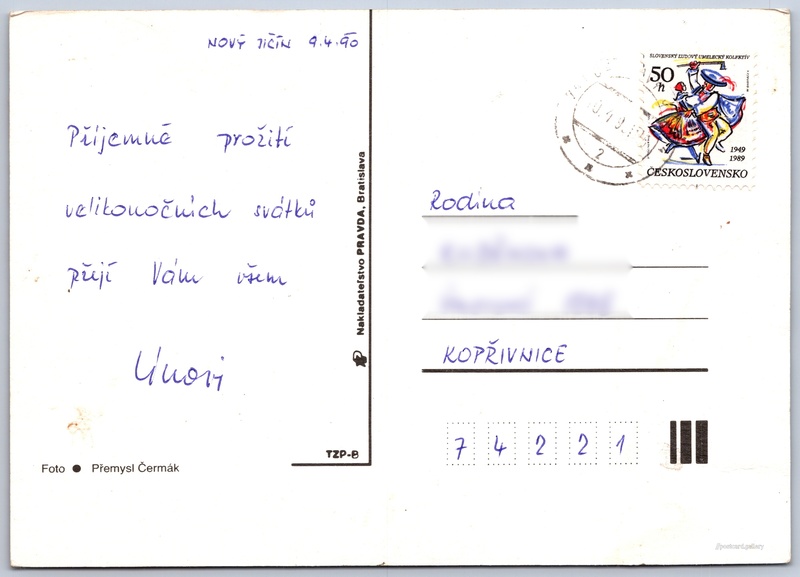 NOVÝ JIČÍN 9.4.90
Příjemné prožití
velikonočních svátků
přejí Vám všem
Foto ● Přemysl Čermák
Nakladateľstvo PRAVDA, Bratislava
TZP-B
SLOVENSKÝ ĽUDOVÝ UMELECKÝ KOLEKTÍV
50 h
1949
1989
ČESKOSLOVENSKO
2
Rodina
KOPŘIVNICE
7 4 2 2 1
postcard.gallery